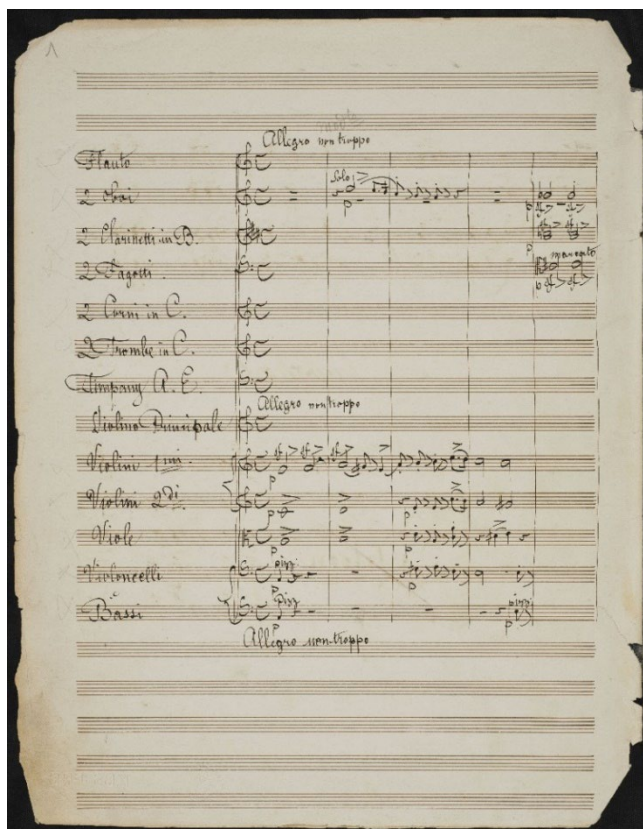 1
Allegro non troppo
Flauto
2 Oboi
Solo
p
p
2 Clarinetti in B.
p
2 Fagotti.
marcato
p
2 Corni in C.
2 Trombe in C.
Timpany A. E.
Allegro non troppo
Violino Principale
Violini 1mi
p
Violini 2di
p
p
Viole
p
p
Violoncelli
pizz
p
Bassi
pizz
pizz
p
p
Allegro non troppo